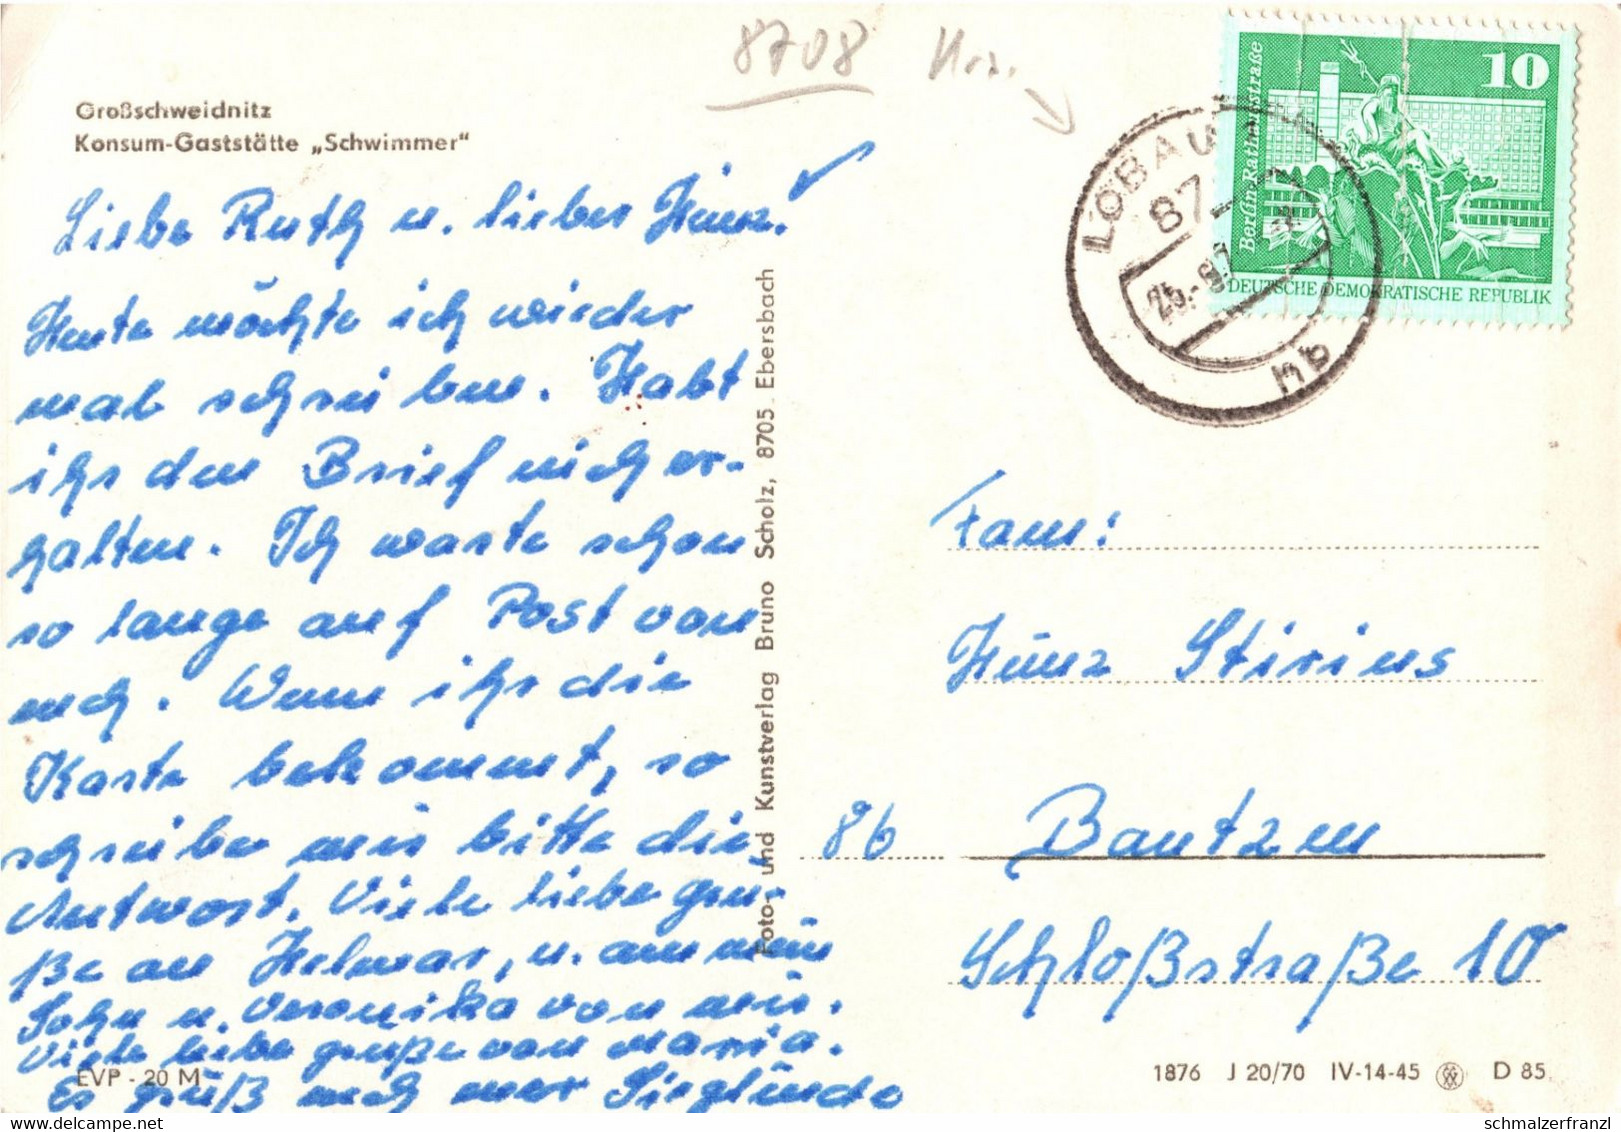 8708
Großschweidnitz
Konsum-Gaststätte „Schwimmer“
Liebe Ruth u. lieber Heinz!
Heute möchte ich wieder
mal schreiben. Habt
ihr den Brief nich er-
halten. Ich warte schon
so lange auf Post von
euch. Wenn ihr die
Karte bekommt, so
schreibe mir bitte die
Antwort. Viele liebe grü-
ße an Helmar, u. an mein
Sohn u. Veronika von mir.
Viele liebe grüße von Maria.
Es grüßt euch eure Sieglinde
EVP - 20 M
Foto- und Kunstverlag Bruno Scholz, 8705 Ebersbach
10
Berlin-Rathausstraße
DEUTSCHE DEMOKRATISCHE REPUBLIK
LÖBAU
87
25.-9.7
hb
Fam:
Heinz Stirius
86 Bautzen
Schloßstraße 10
1876 J 20/70 IV-14-45 D 85
www.delcampe.net
schmalzerfranzl